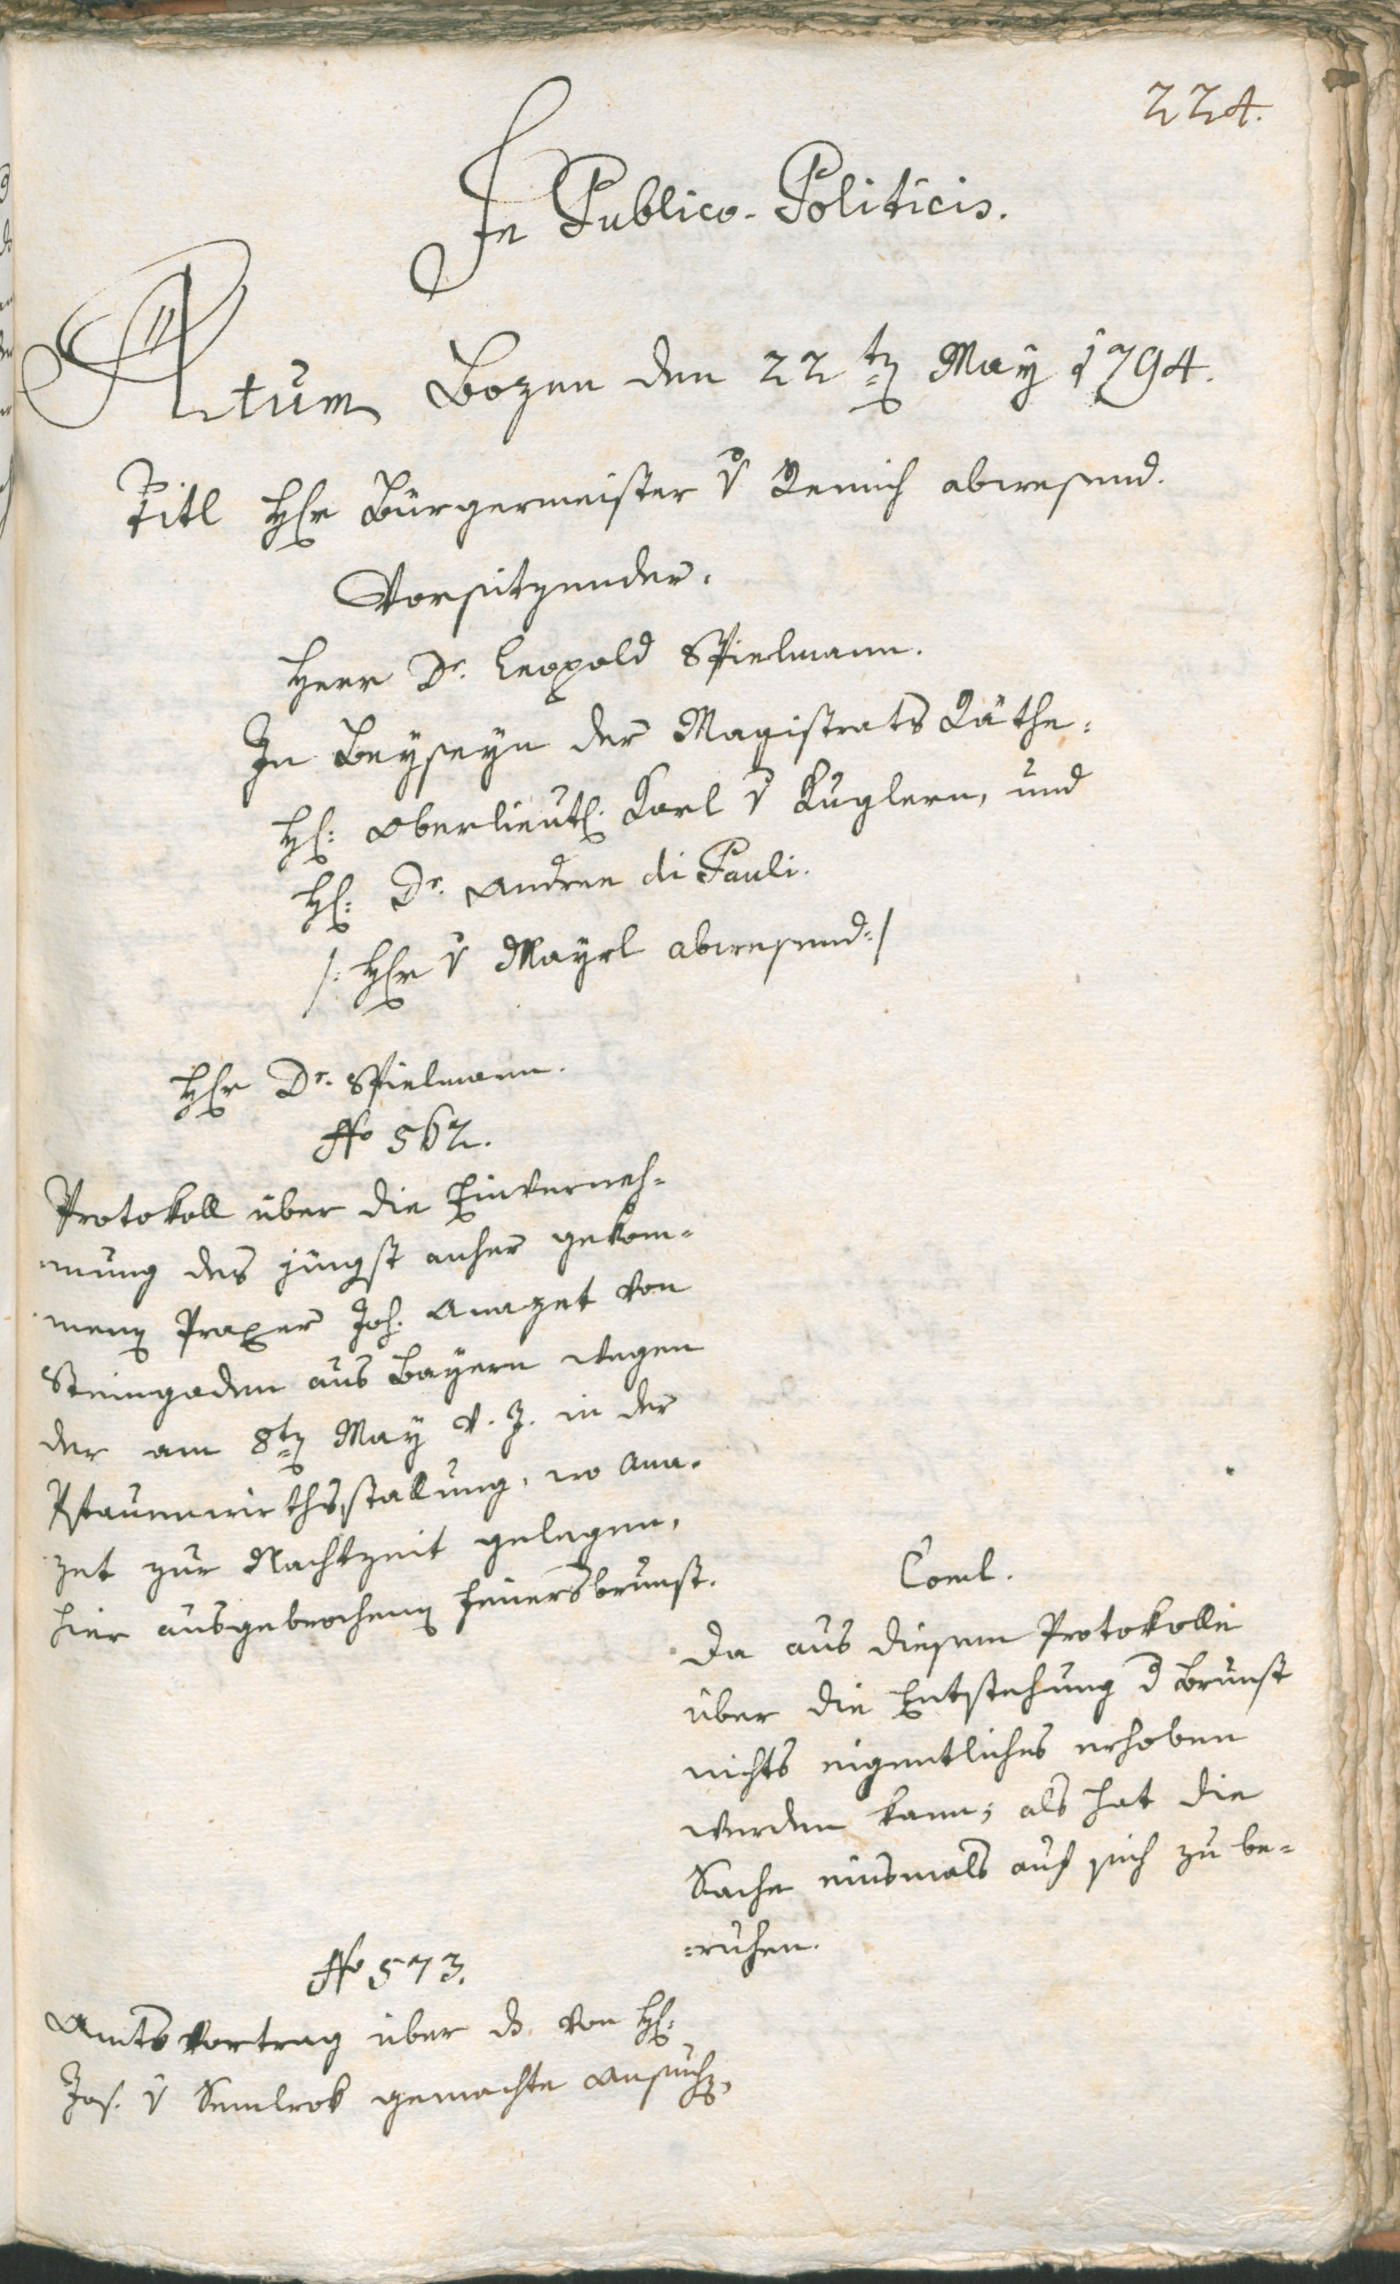 224.
In Publico-Politicis.
Actum Bozen den 22ten May 1794.
Titl Hr Bürgermeister v Remich abwesend.
Vorsitzender.
Herr Dr. Leopold Spielmann.
In Beyseyn der Magistrats Räthe:
H: Oberlieut. Karl v Kuglern, und
H: Dr. Andree di Pauli.
/: Hr v Mayrl abwesend :/
Hr Dr. Spielmann.
No 562.
Protokoll über die Einverneh-
mung des jüngst anher gekom-
menen Praxer Joh. Amazet von
Steingaden aus Bayern wegen
der am 8ten May v. J. in der
Pfauenwirthsstallung, wo Ama-
zet zur Nachtzeit gelegen,
hier ausgebrochenen Feuersbrunst.
Concl.
Da aus diesem Protokolle
über die Entstehung d Brunst
nichts eigentliches erhoben
werden kann; als hat die
Sache einsmals auf sich zu be-
=ruhen.
No 573.
Amtsvortrag über ds von H:
Jos. v Semlrok gemachte Ansuchen,